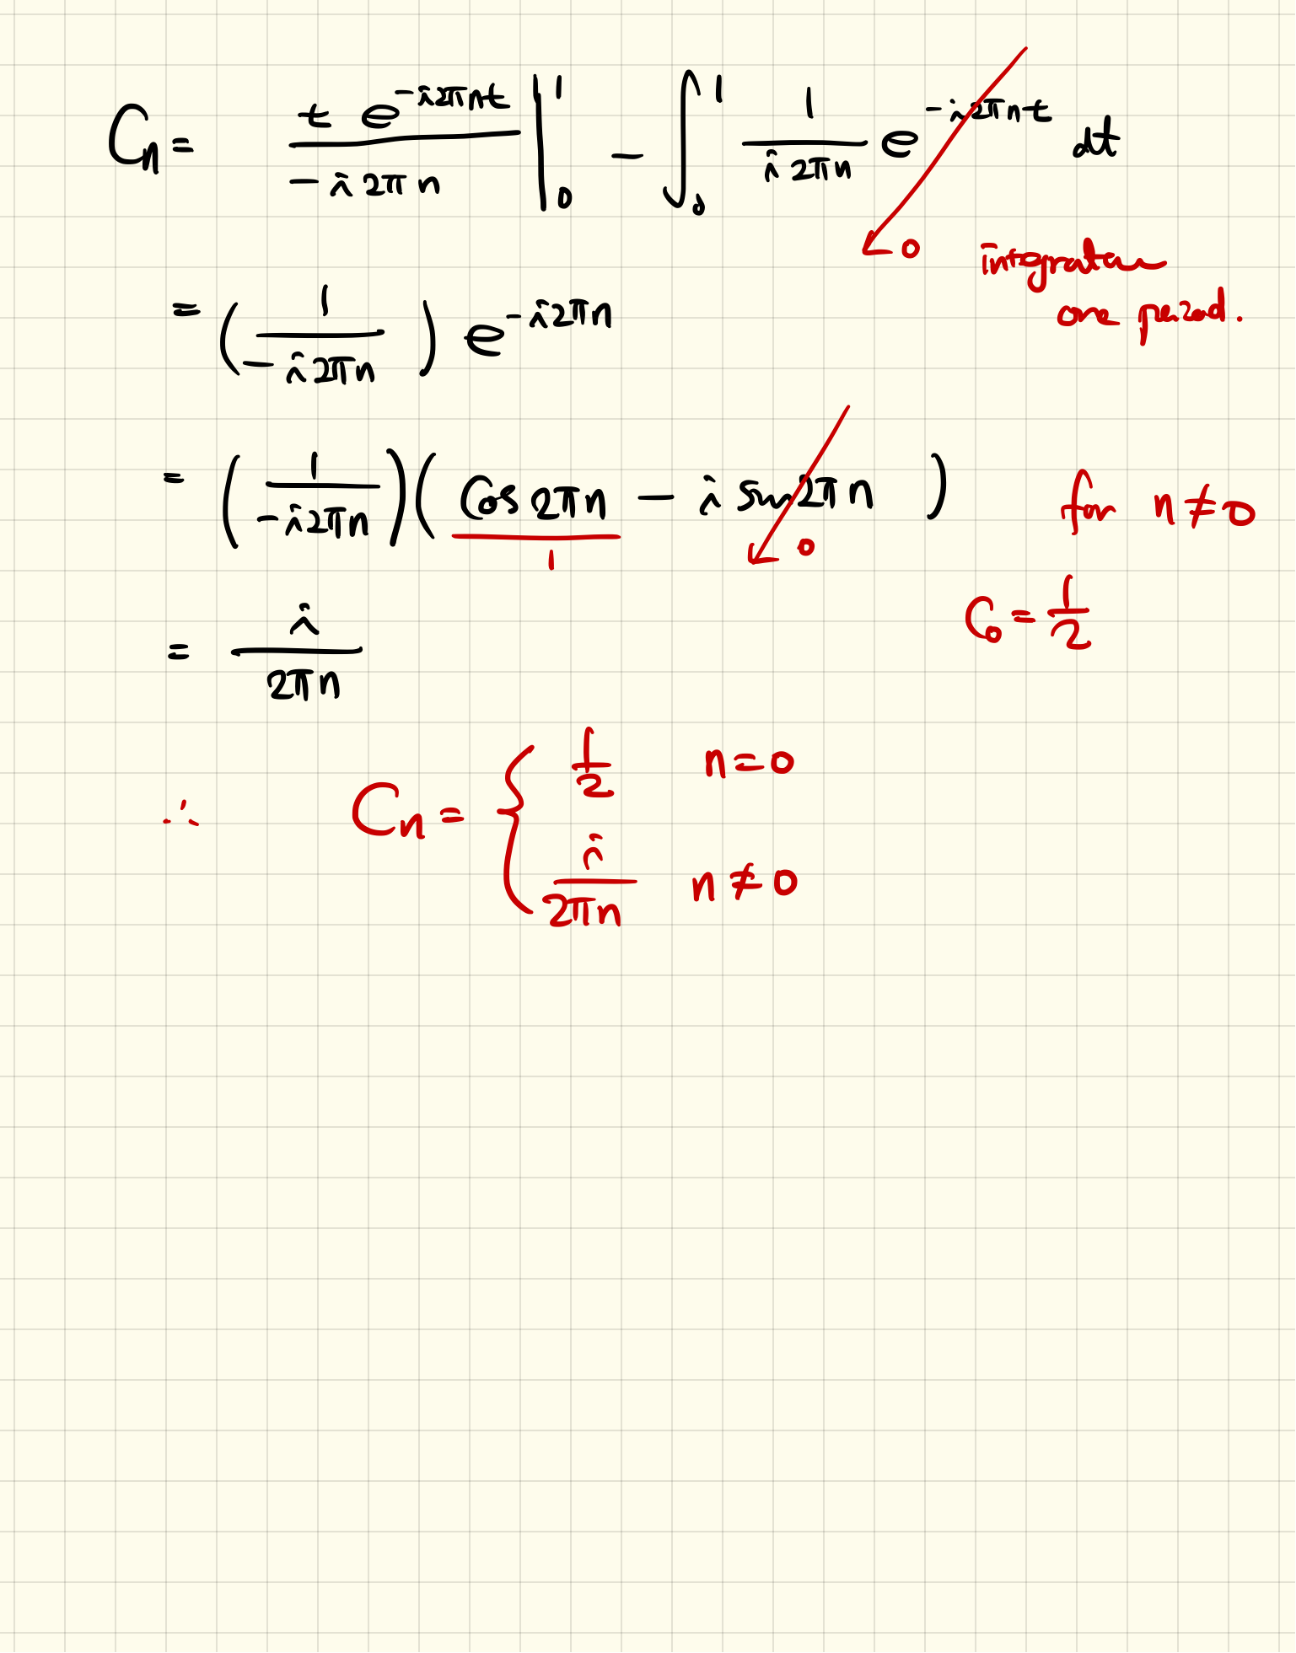 Cₙ = t e^{-i2πnt} / -i2πn |₀¹ - ∫₀¹ 1/(i2πn) e^{-i2πnt} dt
→ 0 integrate
one period.
= (1/(-i2πn)) e^{-i2πn}
= (1/(-i2πn)) (cos 2πn - i sin 2πn) for n ≠ 0
1 → 0
= i/(2πn) C₀ = 1/2
∴ Cₙ = { 1/2 n = 0
i/(2πn) n ≠ 0